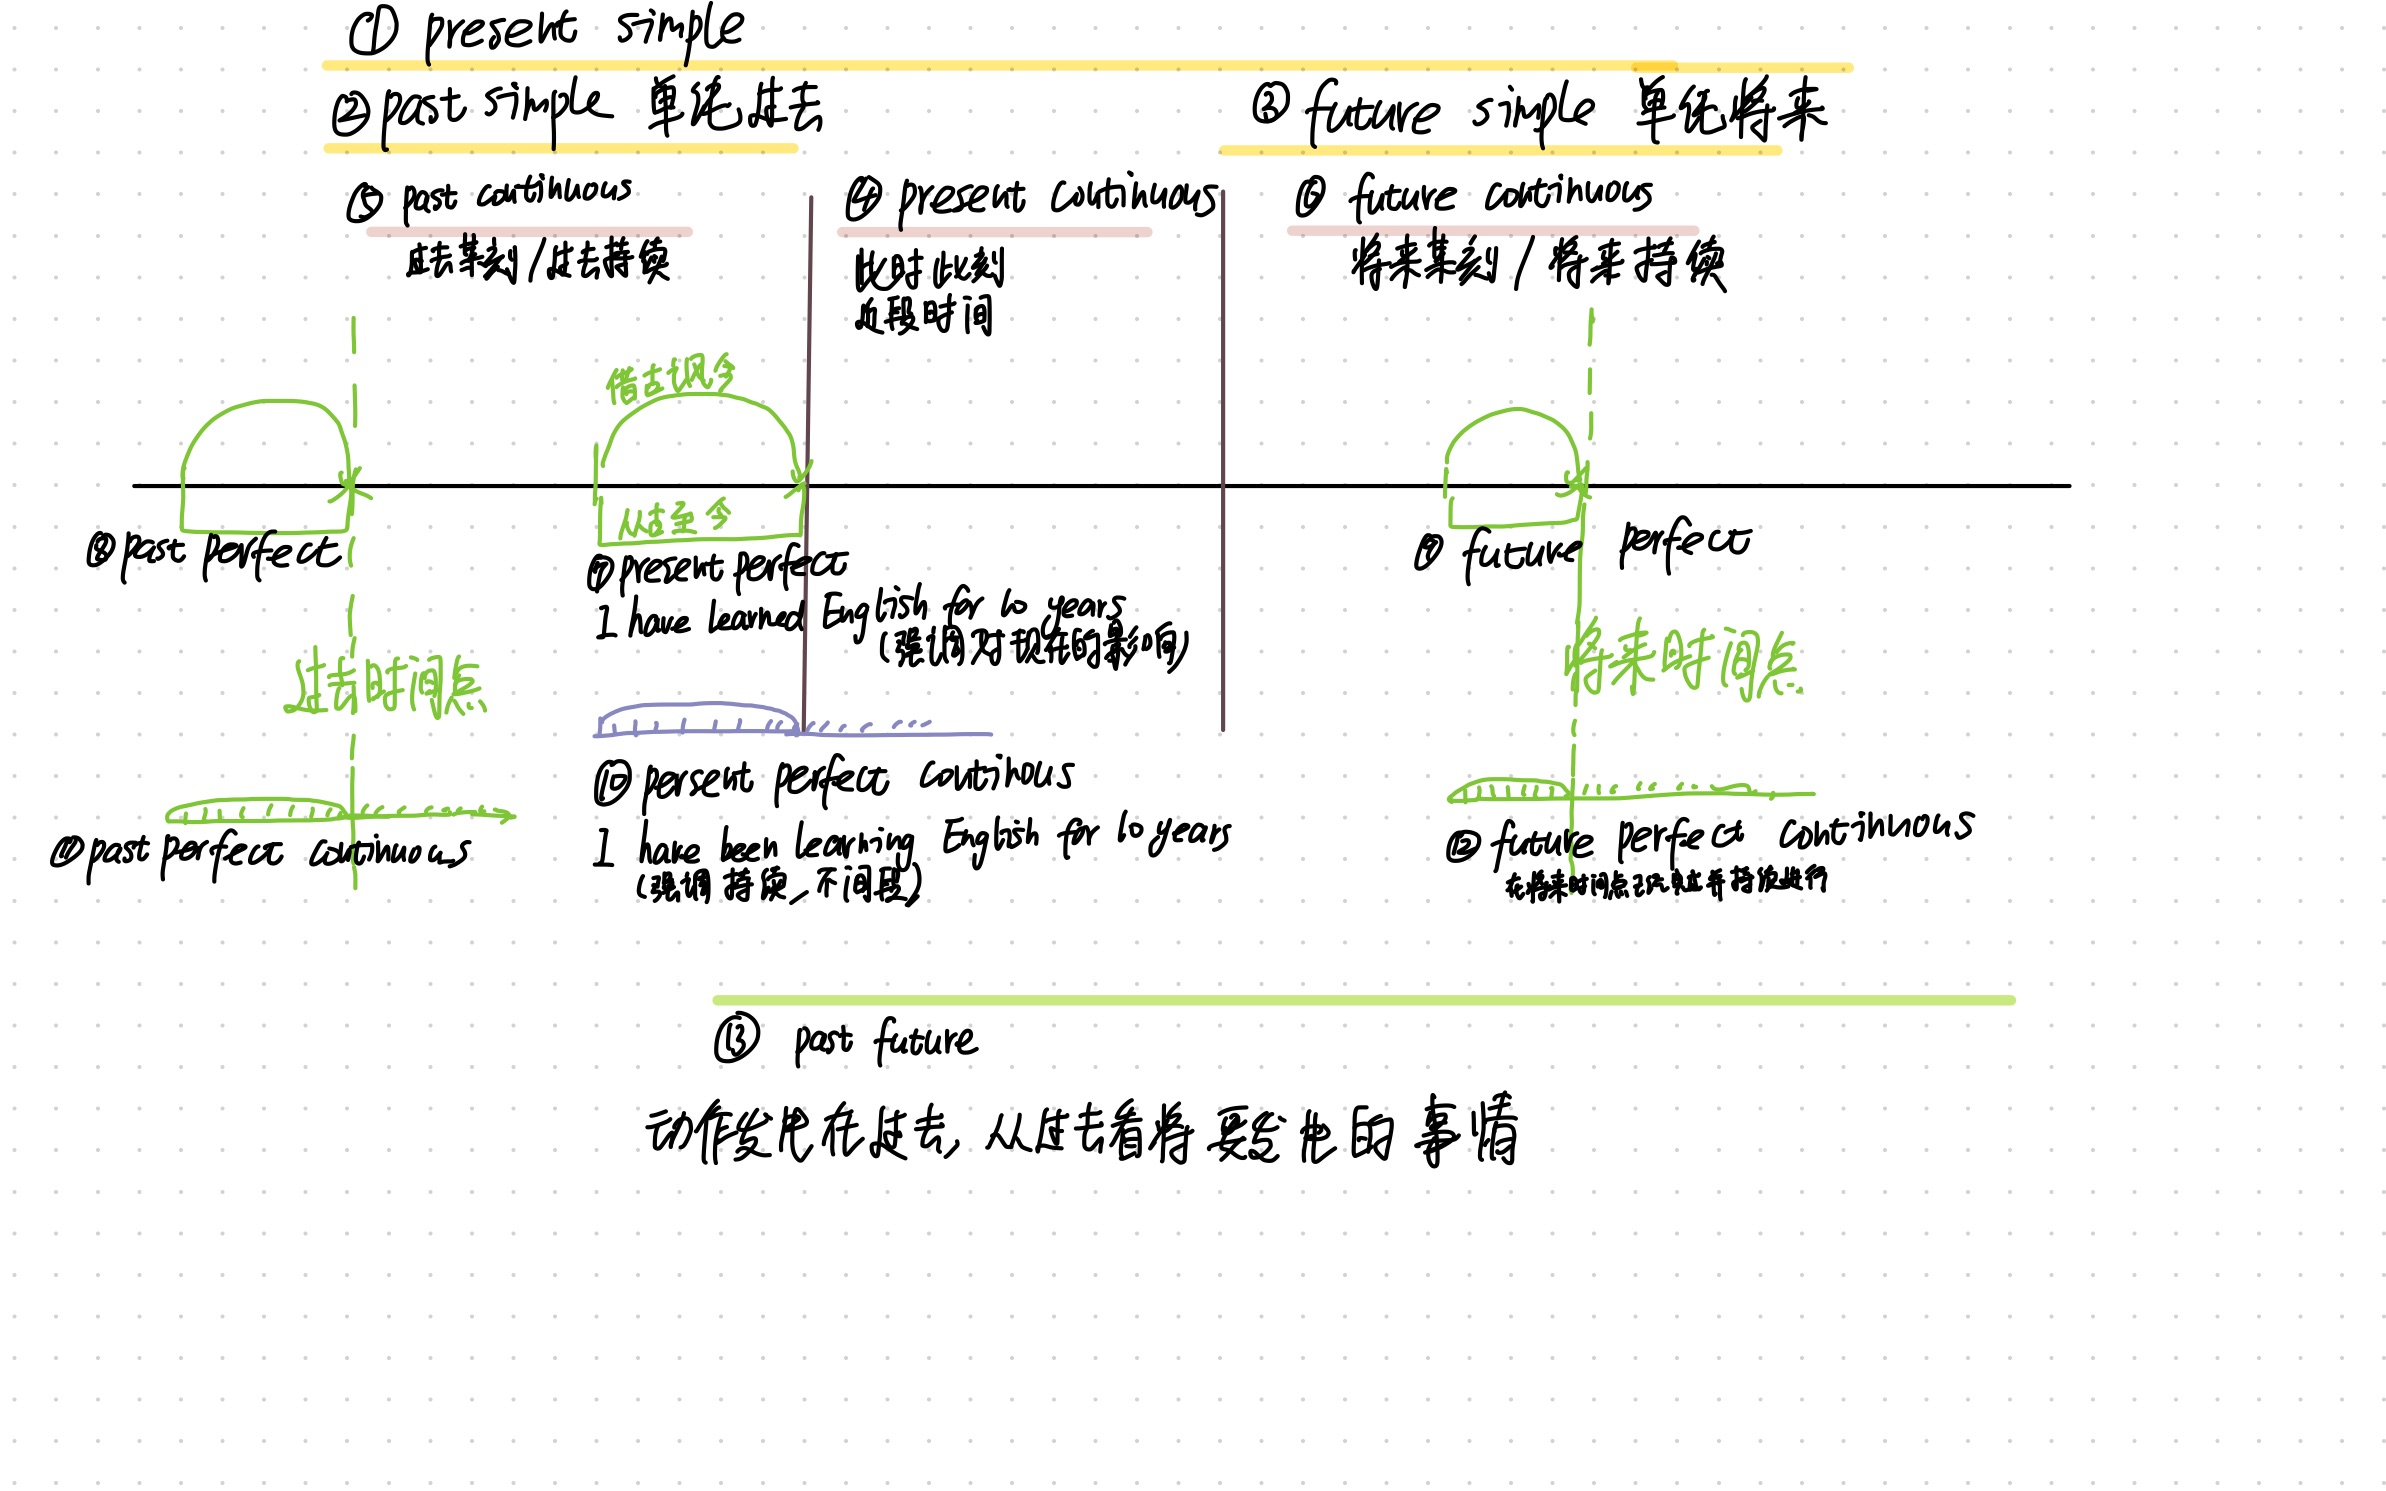 ① present simple
② past simple 单纯过去
③ future simple 单纯将来
⑤ past continuous
过去某刻/过去持续
④ present continuous
此时此刻
近段时间
⑥ future continuous
将来某刻/将来持续
借古现今
从古至今
⑧ past perfect
⑦ present perfect
I have learned English for 10 years
(强调对现在的影响)
⑨ future perfect
过去时间点
将来时间点
⑩ persent perfect continous
I have been learning English for 10 years
(强调持续,不间段)
⑪ past perfect continuous
⑫ future perfect continuous
在将来时间点已经并持续进行
⑬ past future
动作发生在过去,从过去看将要发生的事情